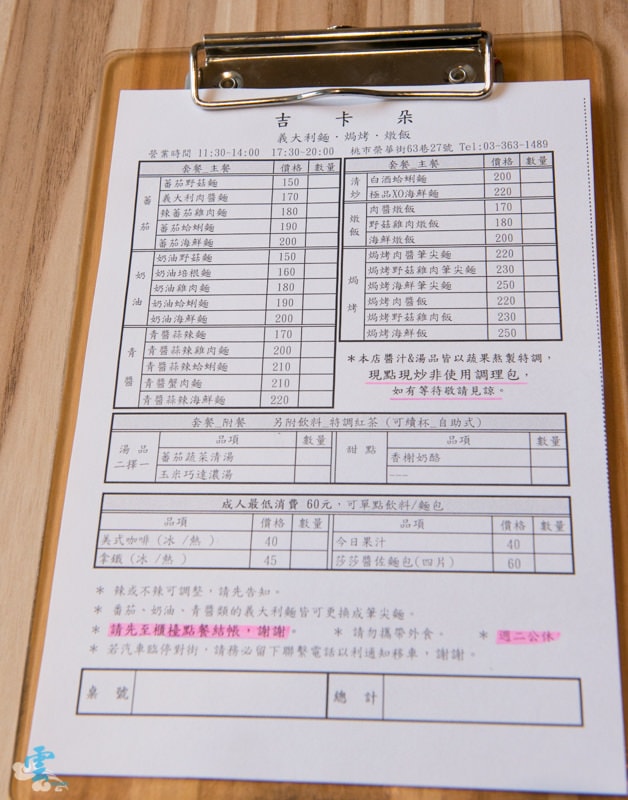 吉 卡 朵
義大利麵．焗烤．燉飯
營業時間 11:30-14:00 17:30-20:00 桃市榮華街63巷27號 Tel:03-363-1489
套餐_主餐 價格 數量
蕃茄
蕃茄野菇麵 150
義大利肉醬麵 170
辣蕃茄雞肉麵 180
蕃茄蛤蜊麵 190
蕃茄海鮮麵 200
奶油
奶油野菇麵 150
奶油培根麵 160
奶油雞肉麵 180
奶油蛤蜊麵 190
奶油海鮮麵 200
青醬
青醬蒜辣麵 170
青醬蒜辣雞肉麵 200
青醬蒜辣蛤蜊麵 210
青醬蟹肉麵 210
青醬蒜辣海鮮麵 220
套餐_主餐 價格 數量
清炒
白酒蛤蜊麵 200
極品XO海鮮麵 220
燉飯
肉醬燉飯 170
野菇雞肉燉飯 180
海鮮燉飯 200
焗烤
焗烤肉醬筆尖麵 220
焗烤野菇雞肉筆尖麵 230
焗烤海鮮筆尖麵 250
焗烤肉醬飯 220
焗烤野菇雞肉飯 230
焗烤海鮮飯 250
*本店醬汁&湯品皆以蔬果熬製特調，
現點現炒非使用調理包，
如有等待敬請見諒。
套餐_附餐 另附飲料_特調紅茶 (可續杯_自助式)
湯品二擇一 品項 數量 甜點 品項 數量
蕃茄蔬菜清湯 香榭奶酪
玉米巧達濃湯 ---
成人最低消費 60元，可單點飲料/麵包
品項 價格 數量 品項 價格 數量
美式咖啡 (冰 /熱 ) 40 今日果汁 40
拿鐵 (冰 /熱 ) 45 莎莎醬佐麵包(四片) 60
* 辣或不辣可調整，請先告知。
* 蕃茄、奶油、青醬類的義大利麵皆可更換成筆尖麵。
* 請先至櫃檯點餐結帳，謝謝。 * 請勿攜帶外食。 * 週二公休
* 若汽車臨停對街，請務必留下聯繫電話以利通知移車，謝謝。
桌 號 總 計
雲